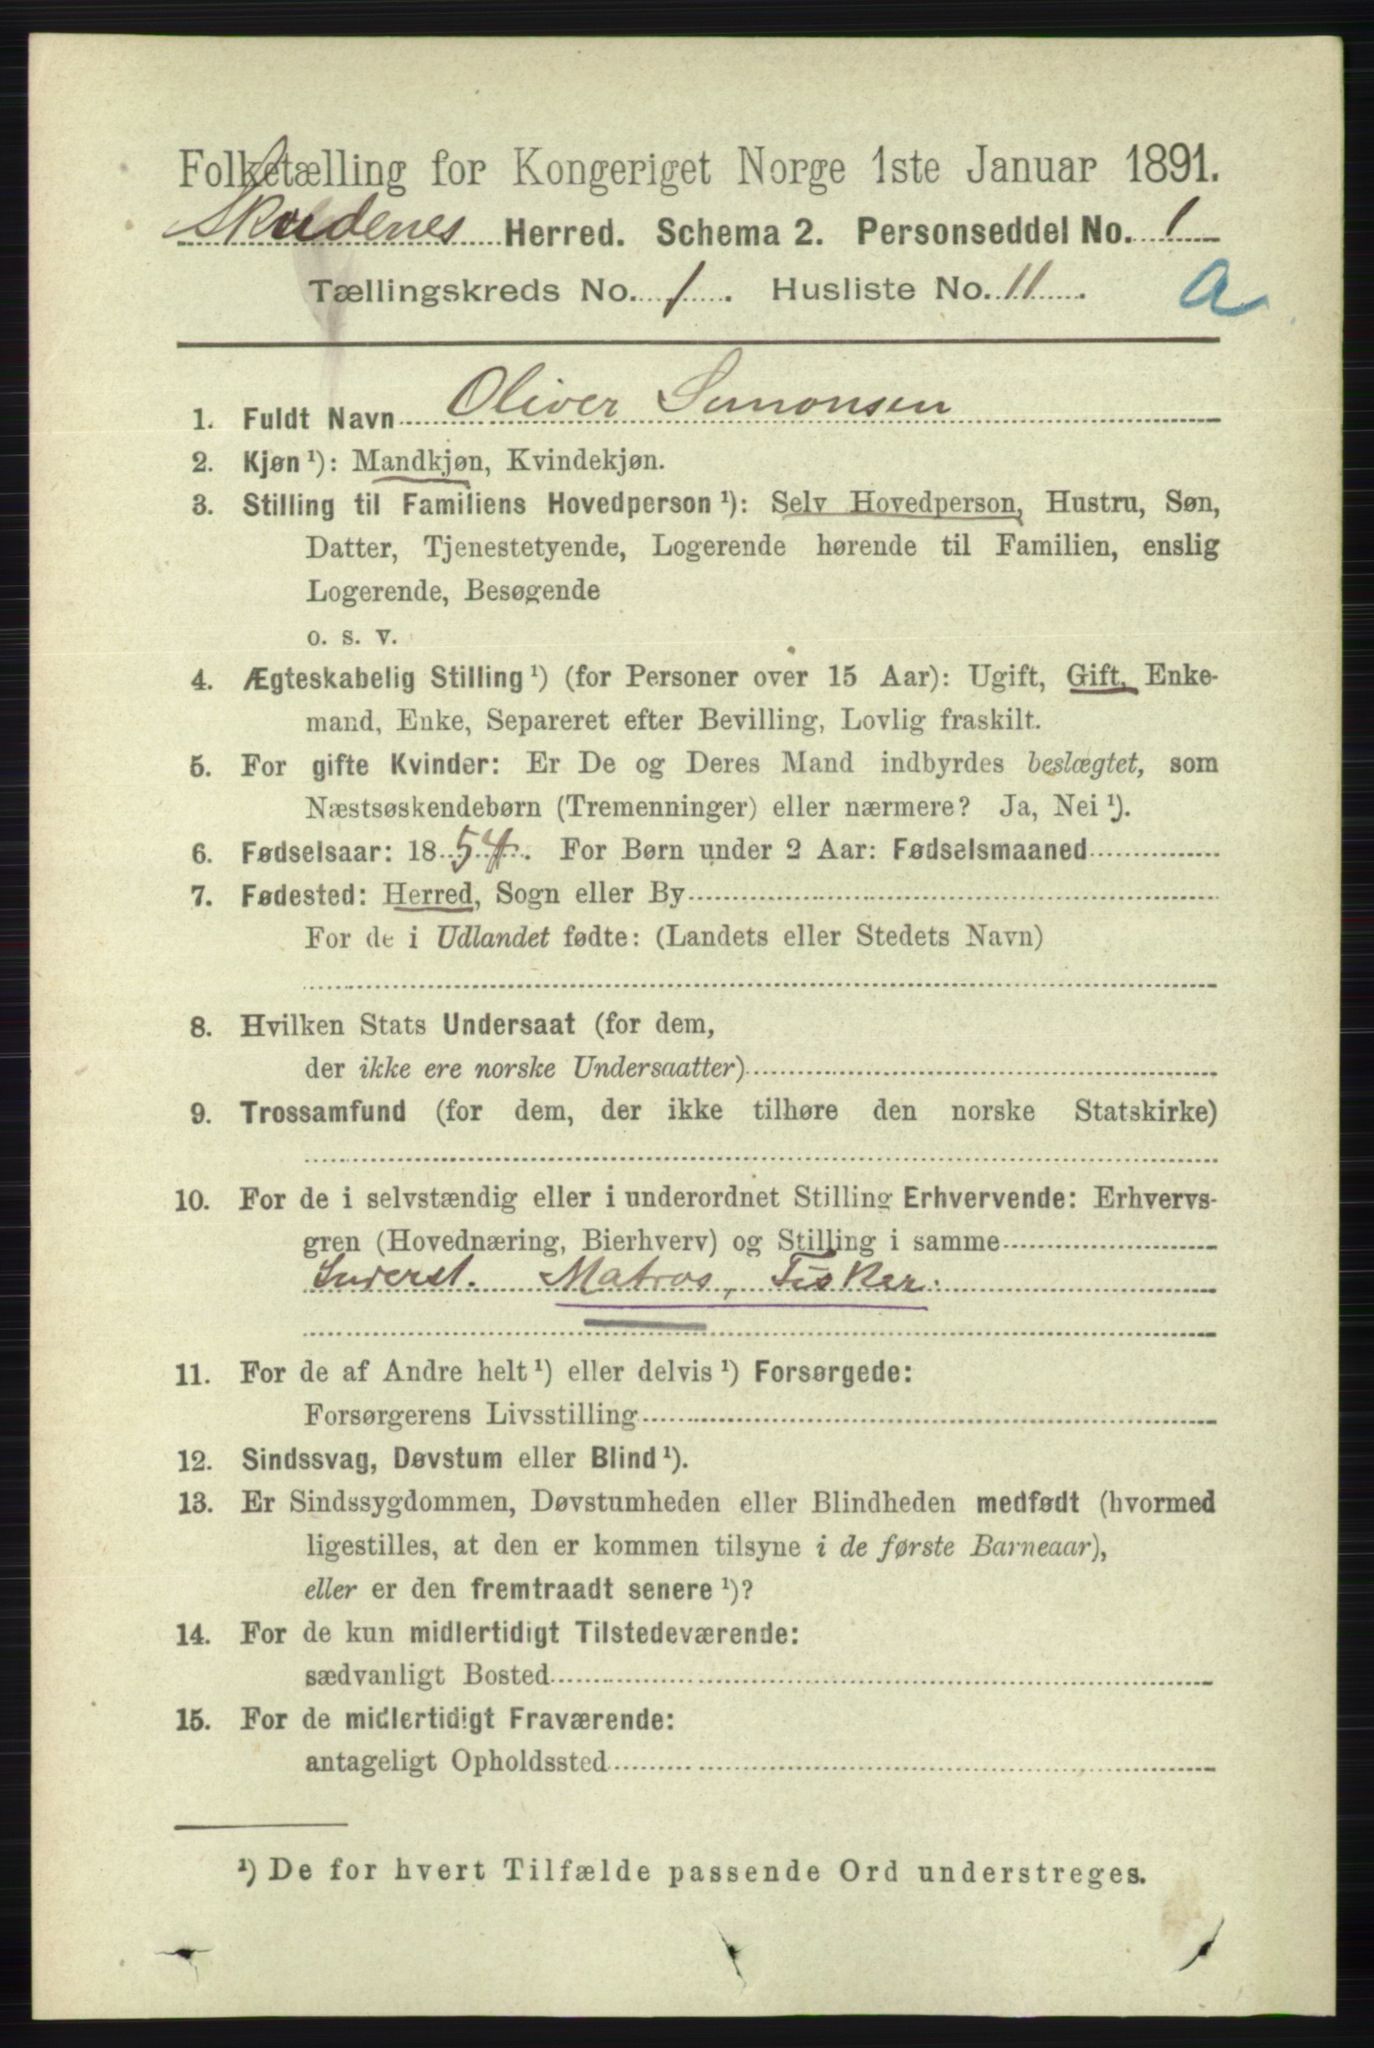 Folketælling for Kongeriget Norge 1ste Januar 1891.
Skudenes Herred. Schema 2. Personseddel No. 1
Tællingskreds No. 1. Husliste No. 11. a
1. Fuldt Navn Oliver Simonsen
2. Kjøn ¹): Mandkjøn, Kvindekjøn.
3. Stilling til Familiens Hovedperson ¹): Selv Hovedperson, Hustru, Søn,
Datter, Tjenestetyende, Logerende hørende til Familien, enslig
Logerende, Besøgende
o. s. v.
4. Ægteskabelig Stilling ¹) (for Personer over 15 Aar): Ugift, Gift, Enke-
mand, Enke, Separeret efter Bevilling, Lovlig fraskilt.
5. For gifte Kvinder: Er De og Deres Mand indbyrdes beslægtet, som
Næstsøskendebørn (Tremenninger) eller nærmere? Ja, Nei ¹).
6. Fødselsaar: 1854. For Børn under 2 Aar: Fødselsmaaned
7. Fødested: Herred, Sogn eller By
For de i Udlandet fødte: (Landets eller Stedets Navn)
8. Hvilken Stats Undersaat (for dem,
der ikke ere norske Undersaatter)
9. Trossamfund (for dem, der ikke tilhøre den norske Statskirke)
10. For de i selvstændig eller i underordnet Stilling Erhvervende: Erhvervs-
gren (Hovednæring, Bierhverv) og Stilling i samme
Inderst. Matros, Fisker.
11. For de af Andre helt ¹) eller delvis ¹) Forsørgede:
Forsørgerens Livsstilling
12. Sindssvag, Døvstum eller Blind ¹).
13. Er Sindssygdommen, Døvstumheden eller Blindheden medfødt (hvormed
ligestilles, at den er kommen tilsyne i de første Barneaar),
eller er den fremtraadt senere ¹)?
14. For de kun midlertidigt Tilstedeværende:
sædvanligt Bosted
15. For de midlertidigt Fraværende:
antageligt Opholdssted
¹) De for hvert Tilfælde passende Ord understreges.